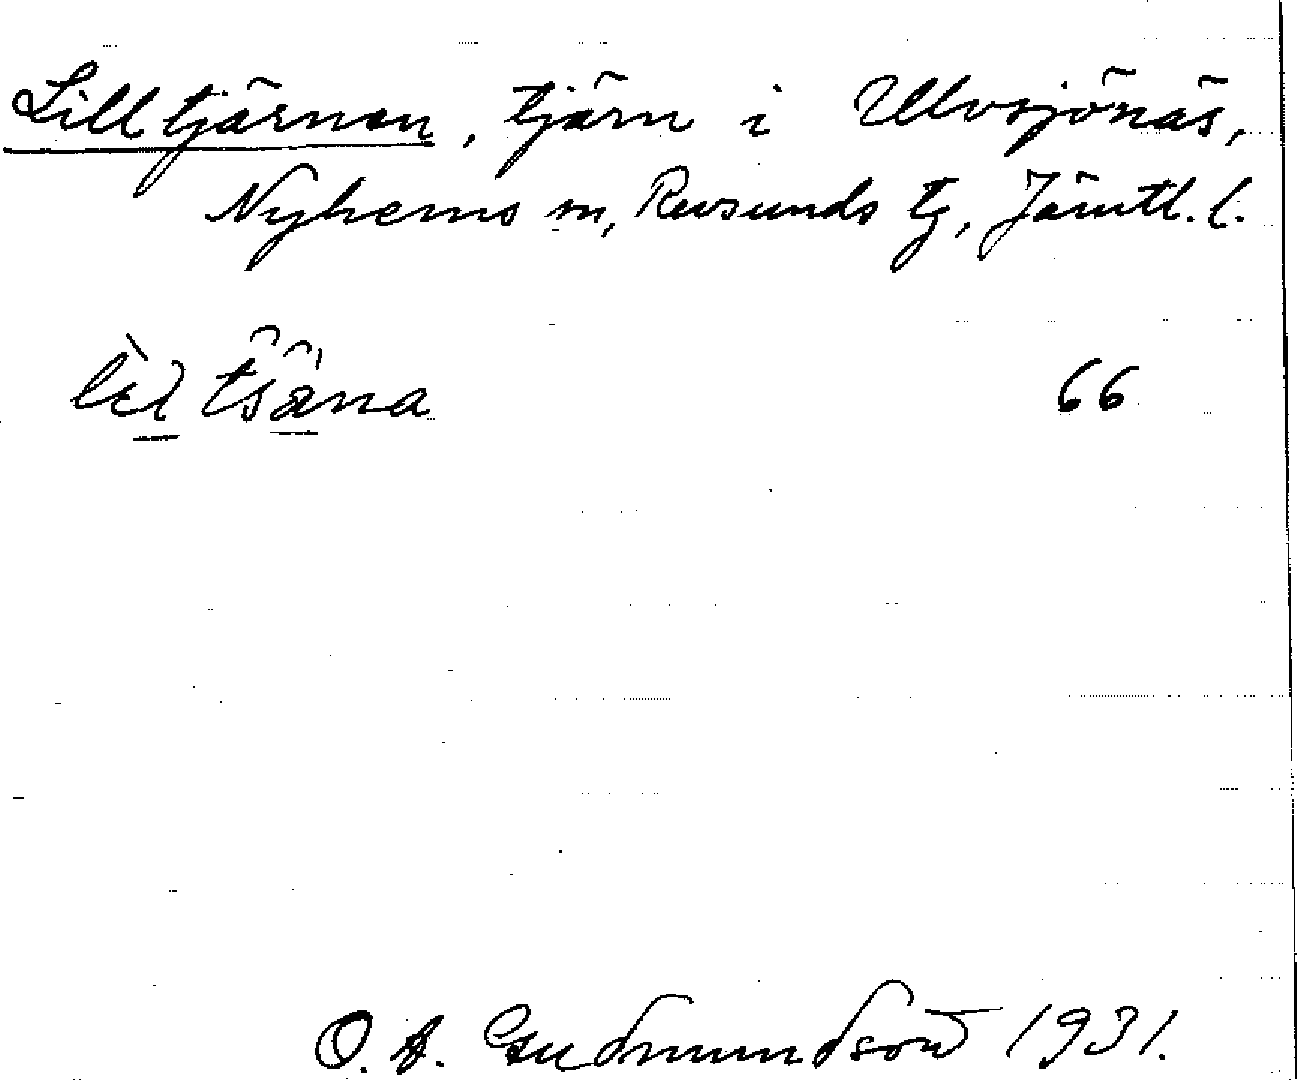 Lilltjärnen, tjärn i Ulvsjönäs,
Nyhems sn, Revsunds tg, Jämtl. l.
66
O. A. Gudmundson 1931.